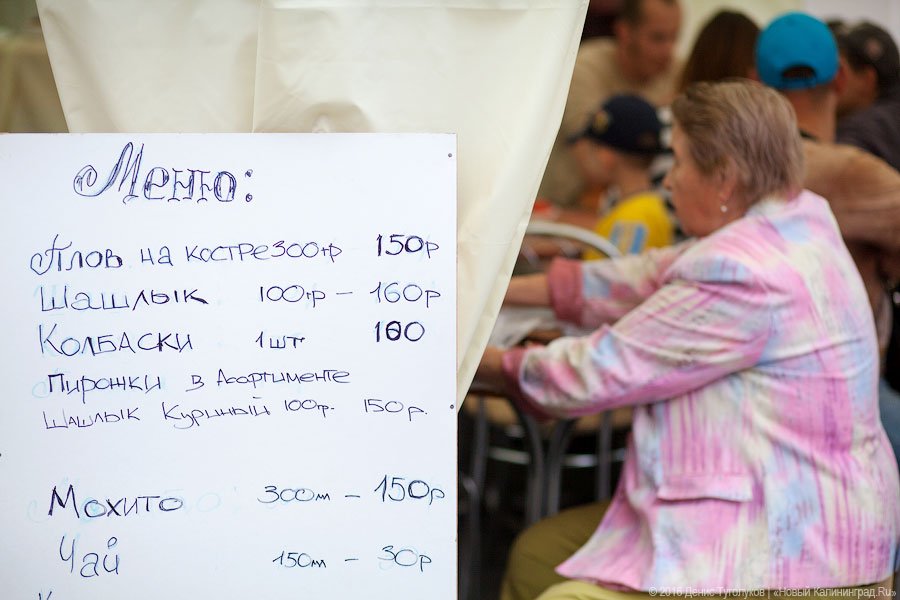 Меню:
Плов на костре 300гр 150р
Шашлык 100гр – 160р
Колбаски 1шт 100
Пирожки в Асортименте
Шашлык Куриный 100гр. 150р.
Мохито 300мл – 150р
Чай 150мл – 30р
© 2016 Денис Туголуков | «Новый Калининград.Ru»